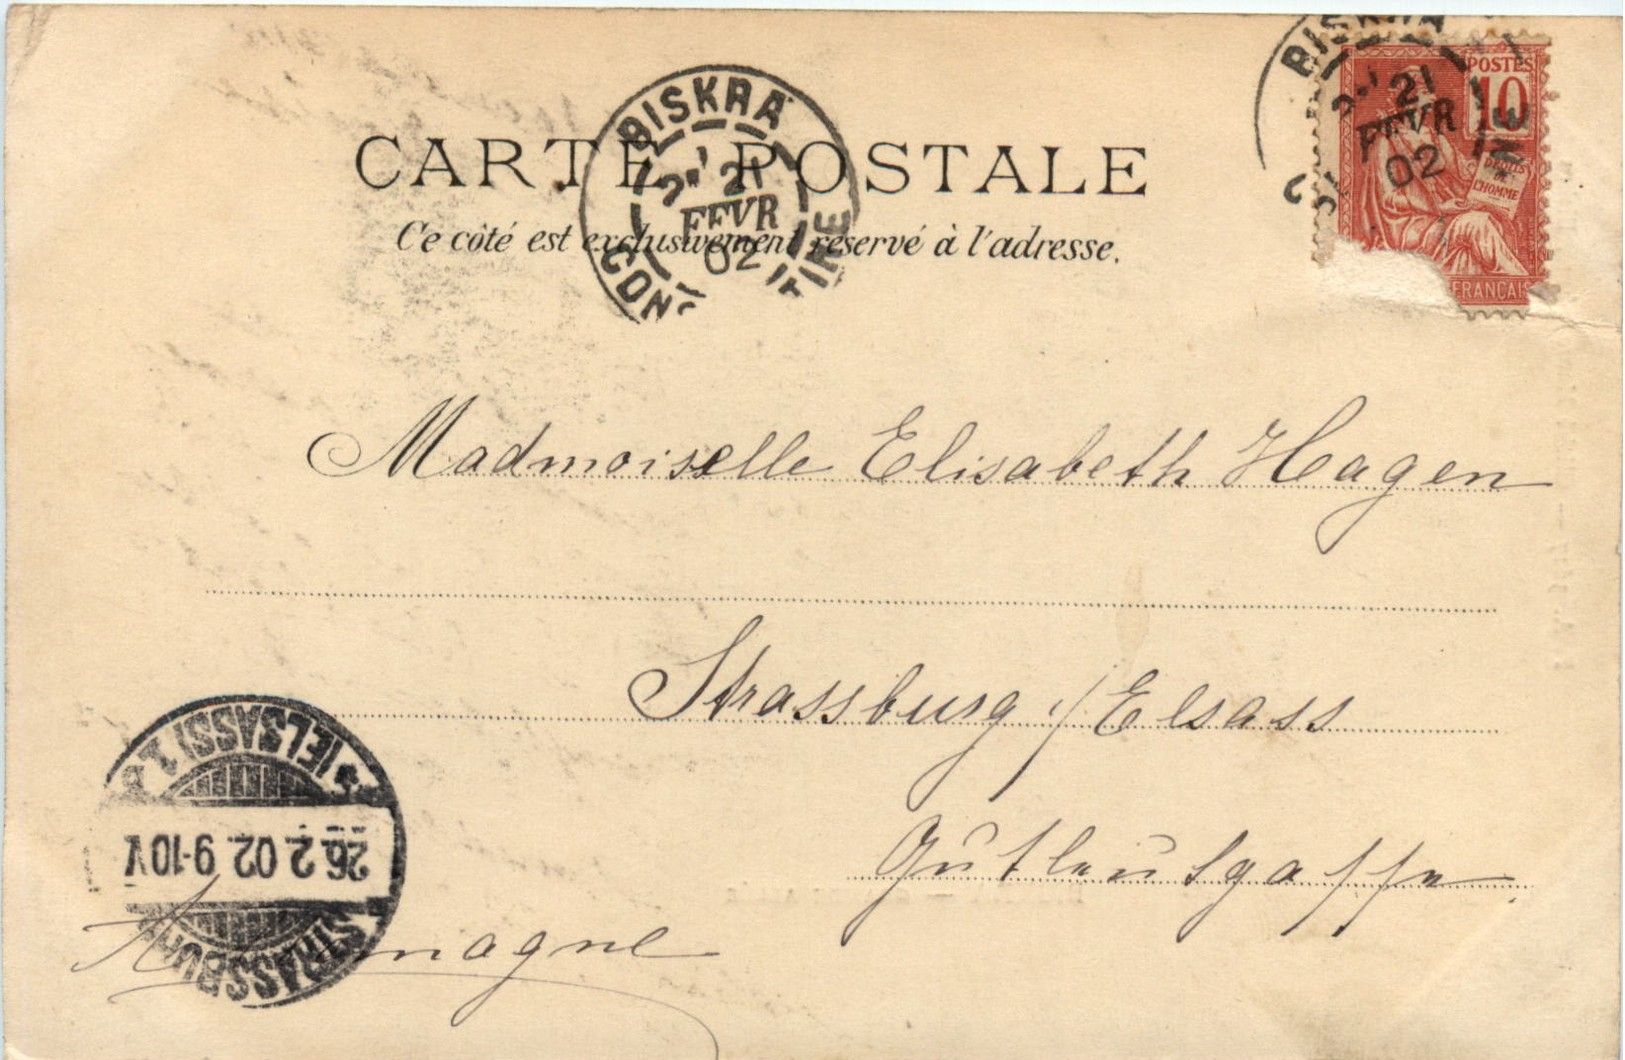 CARTE POSTALE
Ce côté est exclusivement réservé à l'adresse.
BISKRA
21
FEVR
02
CONS TINE
BISKRA
21
FEVR
02
NE
POSTES
10
DROITS
DE
L'HOMME
FRANÇAIS
Madmoiselle Elisabeth Hagen
Strassburg i/Elsass
Gutleutgasse.
Allemagne
STRASSBURG
26.2.02.9-10V
(ELSASS) 1